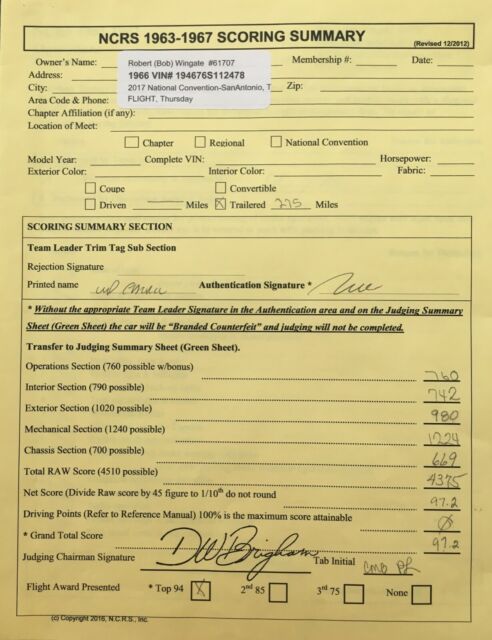 NCRS 1963-1967 SCORING SUMMARY
(Revised 12/2012)
Owner's Name: Robert (Bob) Wingate #61707 Membership #: Date:
Address: 1966 VIN# 194676S112478
City: 2017 National Convention-SanAntonio, T Zip:
Area Code & Phone: FLIGHT, Thursday
Chapter Affiliation (if any):
Location of Meet:
Chapter Regional National Convention
Model Year: Complete VIN: Horsepower:
Exterior Color: Interior Color: Fabric:
Coupe Convertible
Driven Miles X Trailered 275 Miles
SCORING SUMMARY SECTION
Team Leader Trim Tag Sub Section
Rejection Signature
Printed name Authentication Signature *
* Without the appropriate Team Leader Signature in the Authentication area and on the Judging Summary
Sheet (Green Sheet) the car will be "Branded Counterfeit" and judging will not be completed.
Transfer to Judging Summary Sheet (Green Sheet).
Operations Section (760 possible w/bonus) 760
Interior Section (790 possible) 742
Exterior Section (1020 possible) 980
Mechanical Section (1240 possible) 1224
Chassis Section (700 possible) 669
Total RAW Score (4510 possible) 4375
Net Score (Divide Raw score by 45 figure to 1/10th do not round 97.2
Driving Points (Refer to Reference Manual) 100% is the maximum score attainable Ø
* Grand Total Score 97.2
Judging Chairman Signature DW Brigham Tab Initial
Flight Award Presented * Top 94 X 2nd 85 3rd 75 None
(c) Copyright 2016, N.C.R.S., Inc.